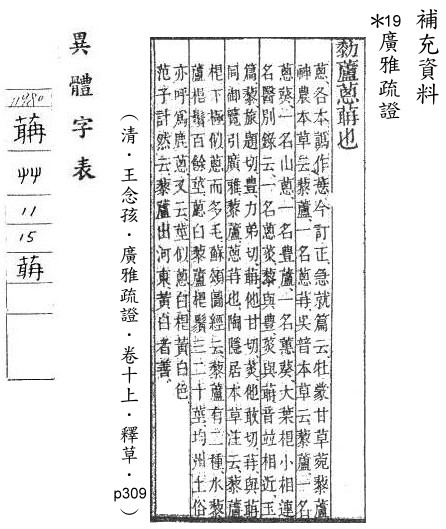 補充資料
*19廣雅疏證
藜蘆蔥也
蔥各本譌作今訂正急就篇云牡蒙甘草菀藜蘆
神農本草云藜蘆一名蔥苒吳普本草云藜蘆一名
蔥葵一名山蔥一名豐蘆一名蕙葵大葉根小相連
名醫別錄云一名蔥菼藜與豊菼與音竝相近玉
篇藜旅題切豊力弟切他甘切菼他敢切苒與
同御覽引廣雅藜蘆蔥苒也陶隱居本草注云藜蘆
根下極似蔥而多毛蘇頌圖經云藜蘆有二種水藜
蘆根鬚百餘莖蔥白藜蘆根鬚三二十莖均州土俗
亦呼為鹿蔥又云莖似蔥白根黃白色
范子計然云藜蘆出河東黃白者善
(清·王念孫·廣雅疏證·卷十上·釋草·p309)
異體字表
艸
11
15